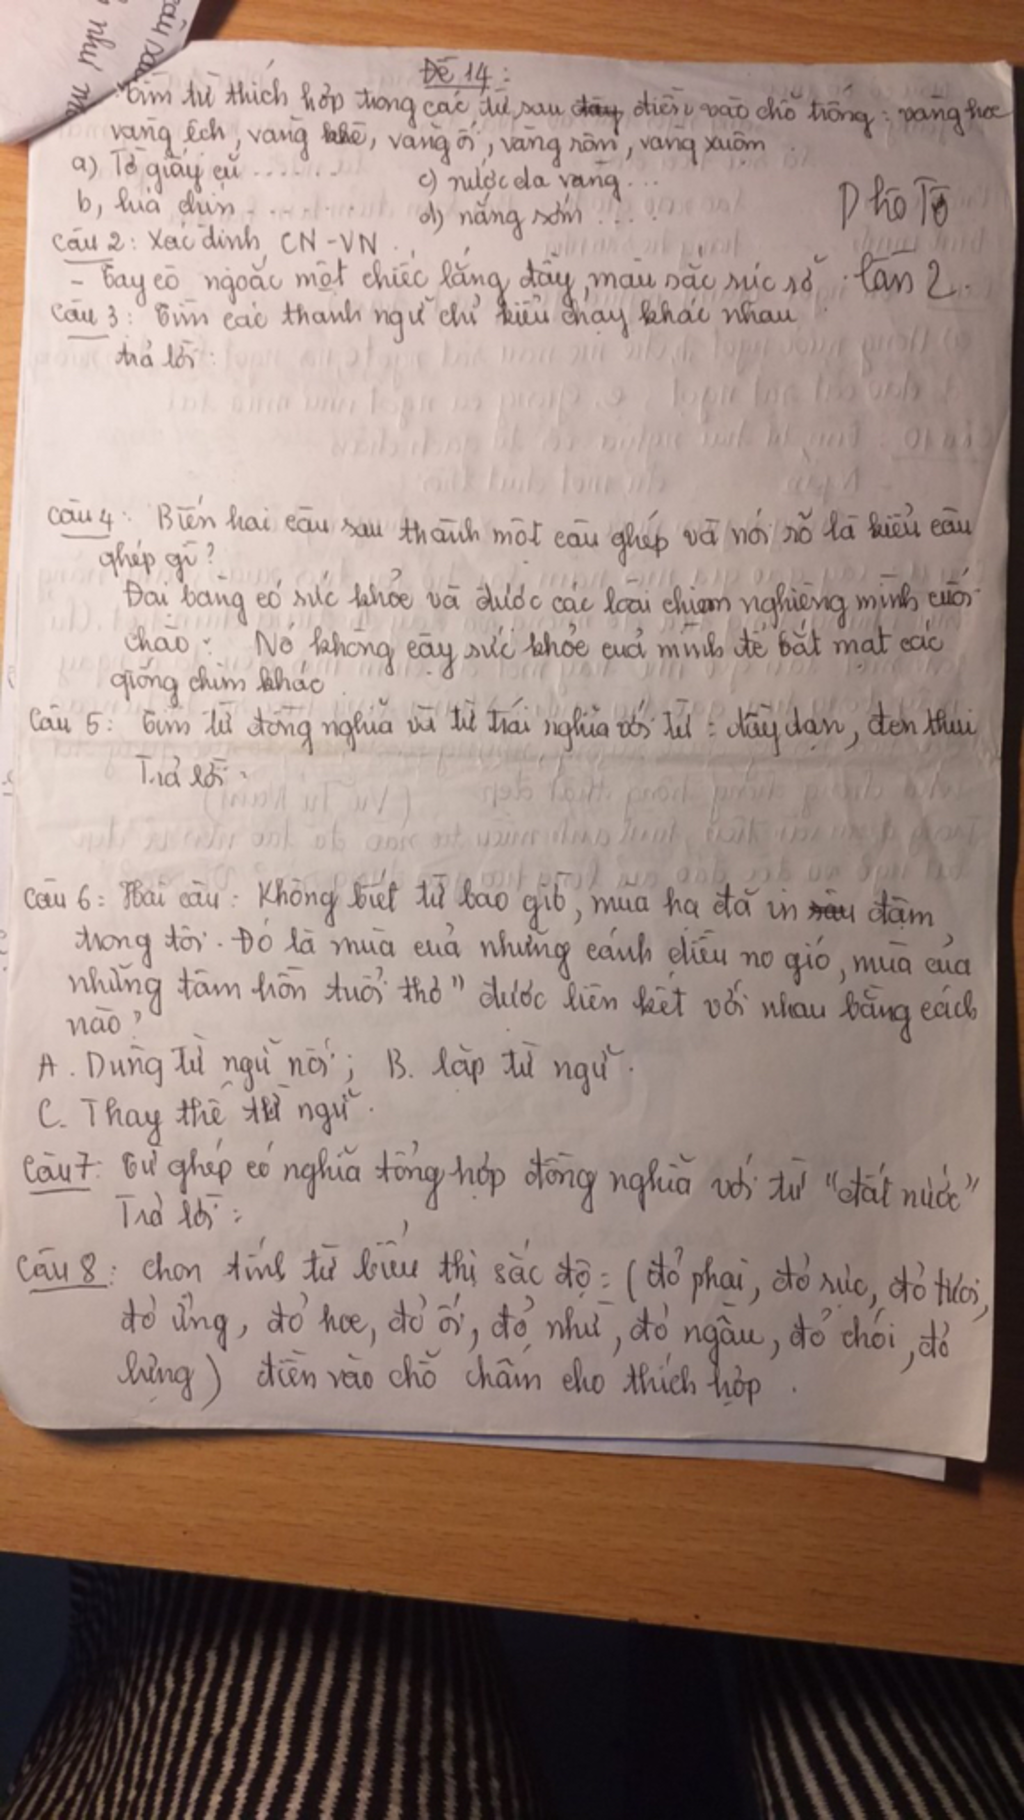 Đề 14:
Tìm từ thích hợp trong các từ sau đây điền vào chỗ trống: vàng hoe
vàng ệch, vàng khè, vàng ối, vàng rộm, vàng xuộm
a) Tờ giấy cũ ........
c) nước da vàng ...
b, lúa chín ........
d) nắng sớm .....
Phô Tô
Câu 2: Xác định CN-VN.
- Tay cô ngoắc một chiếc lẵng đầy màu sắc sặc sỡ.
lần 2.
Câu 3: Tìm các thành ngữ chỉ kiểu chạy khác nhau
trả lời:
Câu 4: Biến hai câu sau thành một câu ghép và nói rõ là kiểu câu
ghép gì?
Đại bàng có sức khỏe và được các loài chim nghiêng mình cúi
chào. Nó không cậy sức khỏe của mình để bắt nạt các
giống chim khác
Câu 5: Tìm từ đồng nghĩa và từ trái nghĩa với từ: dầy dạn, đen thui
Trả lời:
Câu 6: Hai câu: Không biết từ bao giờ, mùa hạ đã in sâu đậm
trong tôi. Đó là mùa của những cánh diều no gió, mùa của
những tâm hồn tuổi thơ" được liên kết với nhau bằng cách
nào?
A. Dùng từ ngữ nối; B. lặp từ ngữ.
C. Thay thế từ ngữ.
Câu 7: Từ ghép có nghĩa tổng hợp đồng nghĩa với từ "đất nước"
Trả lời:
Câu 8: chọn tính từ biểu thị sắc độ: (đỏ phai, đỏ rực, đỏ tươi,
đỏ ửng, đỏ hoe, đỏ ối, đỏ nhừ, đỏ ngầu, đỏ chói, đỏ
hừng) điền vào chỗ chấm cho thích hợp.